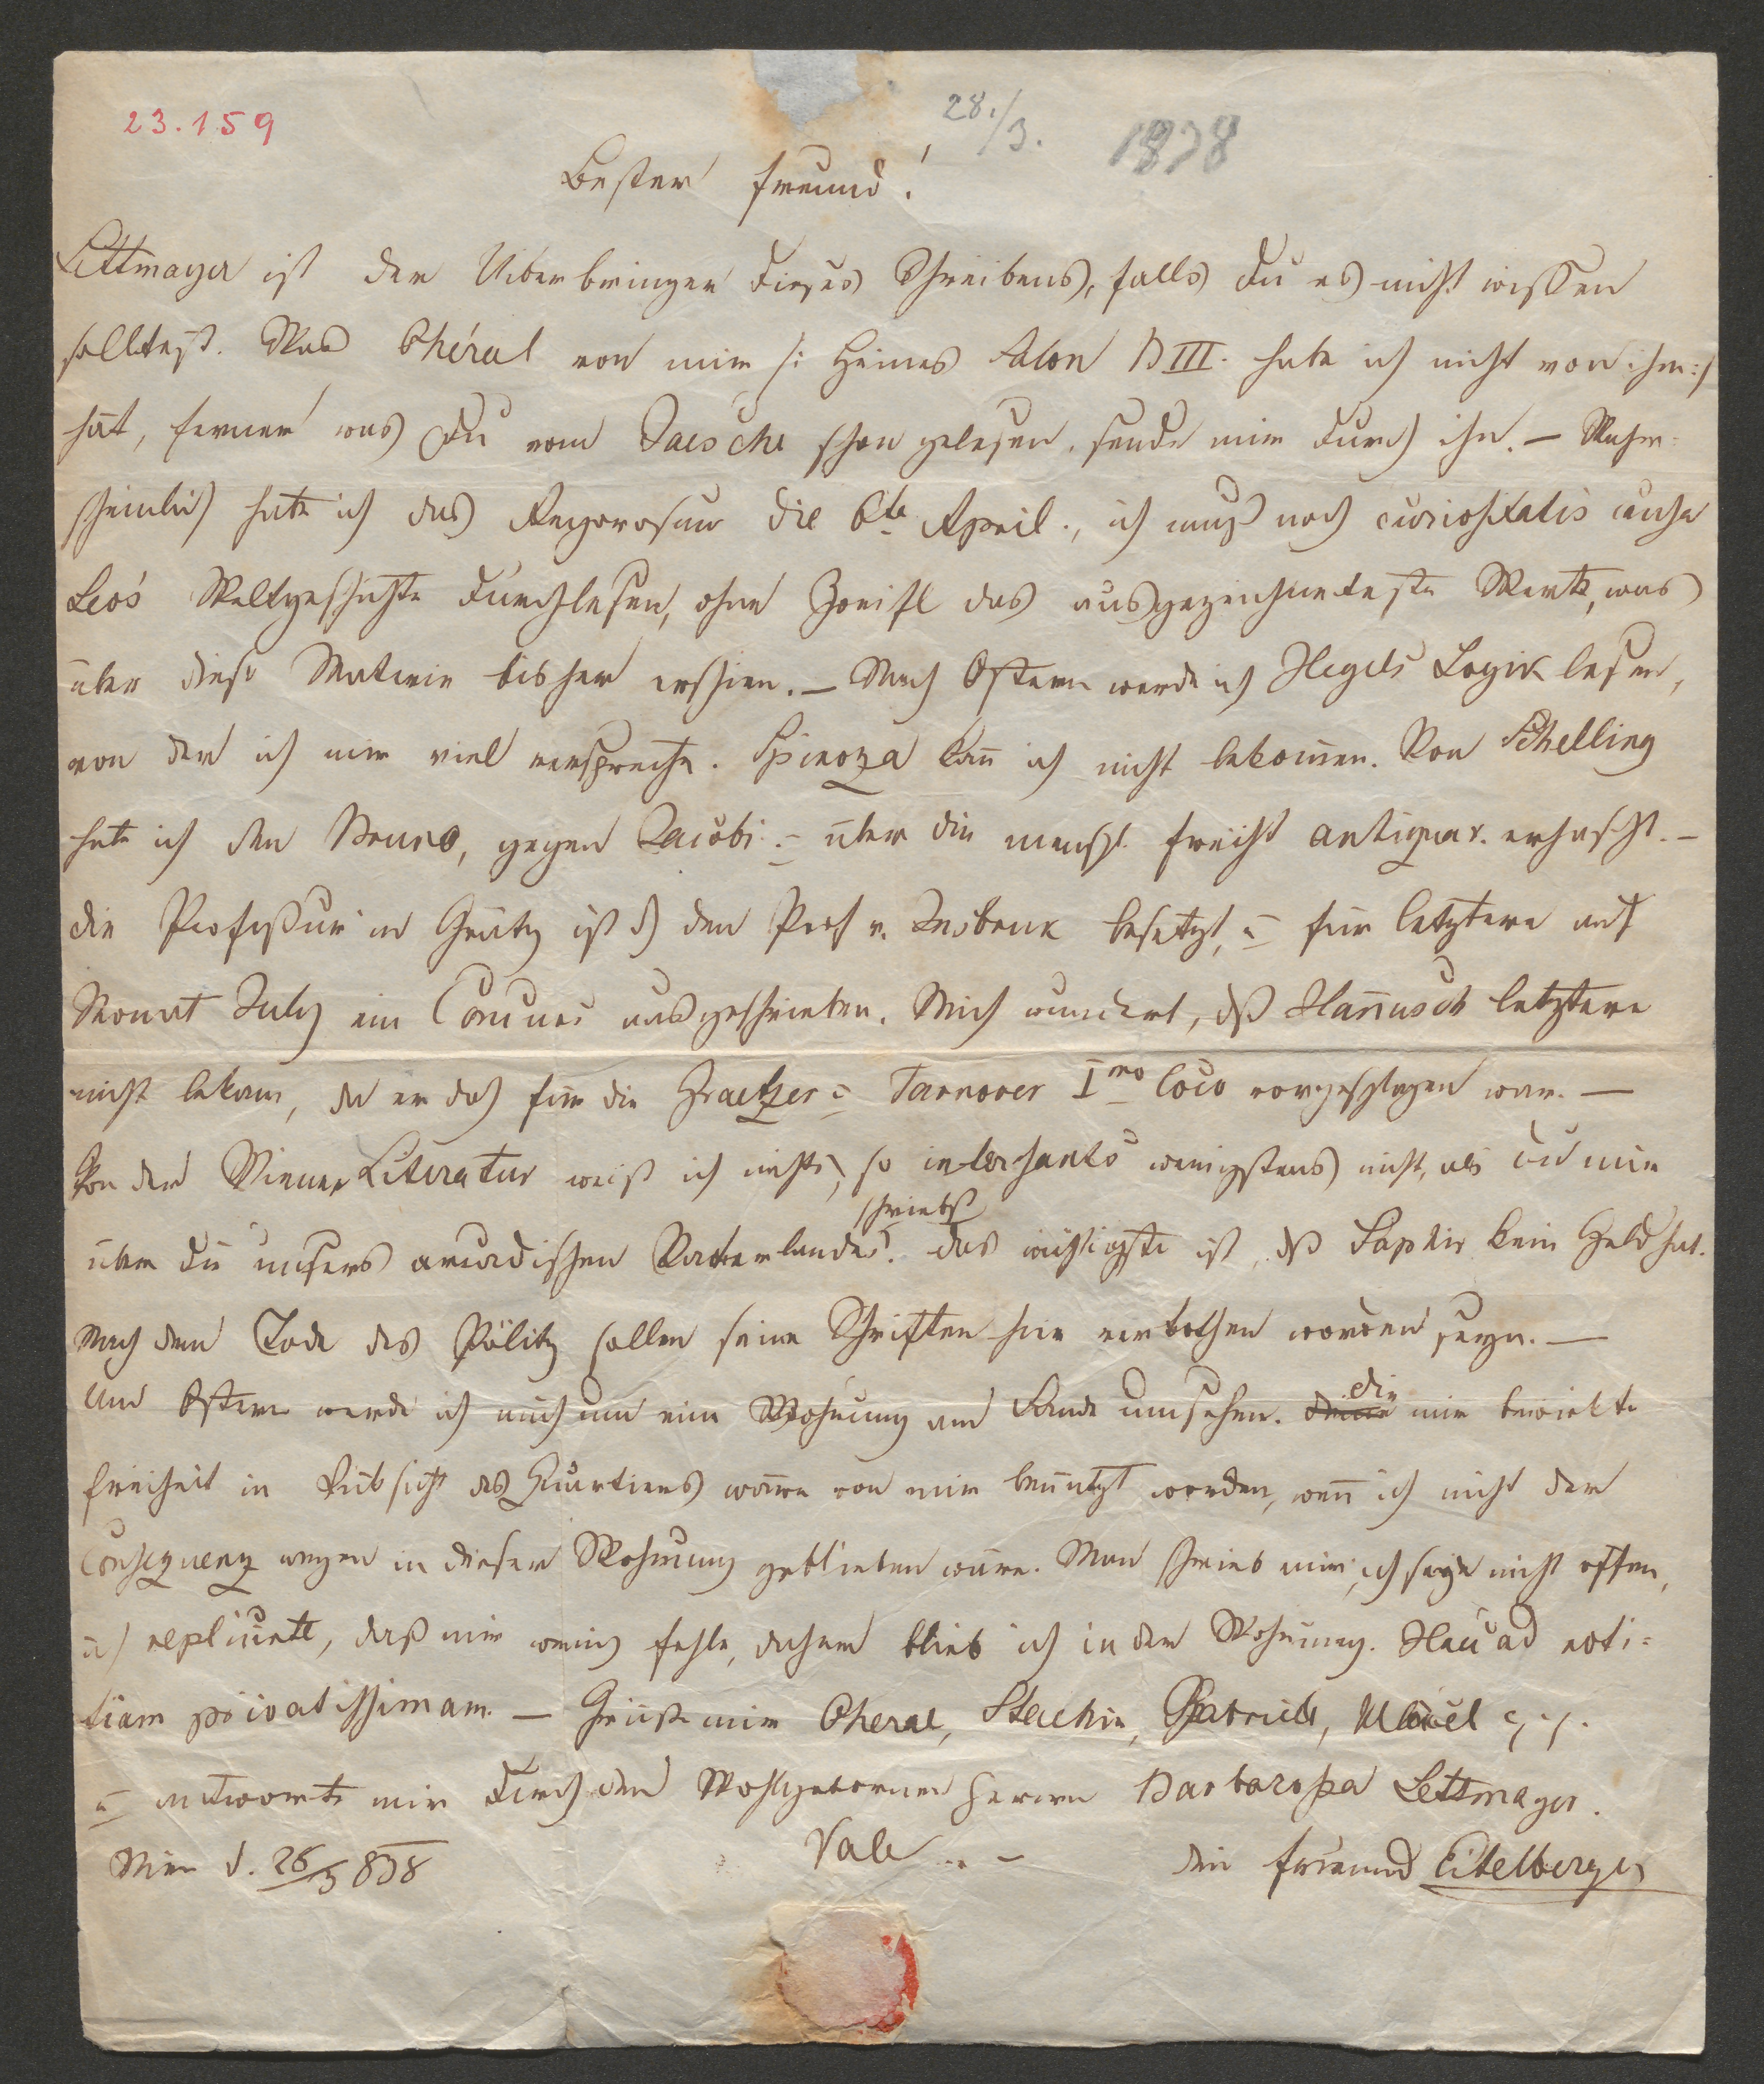 23.159
28./3. 1838
Bester Freund!
Lettmayer ist der Uiberbringer dieses Schreibens, falls du es nicht wissen
solltest. Was Chéral von mir /: Heines Salon B III. habe ich nicht von ihm :/
hat, ferner was Du vom Jaesche schon gelesen, sende mir durch ihn. — Wahr=
scheinlich habe ich das Regorosum die 6te April., ich muß noch curiositatis causa
Leo's Weltgeschichte durchlesen, ohne Zweifl das ausgezeichneteste Werk, was
über diese Materie bisher erschien. — Nach Ostern werde ich Hegels Logik lesen,
von der ich mir viel verspreche. Spinoza kan̄ ich nicht bekom̄en. Von Schelling
habe ich den Bruno, gegen Jacobi u über die menschl. Freiht antiquar. erhascht. —
die Professur in Grätz ist d den Prof v. Insbruk besetzt, u für letztere auf
Monat July ein Concurs ausgeschrieben. Mich wundert, dß Han̄usch letztere
nicht bekam, da er doch für die Graetzer u Tarnover Imo loco vorgeschlagen war. —
Von der Wiener Literatur weiß ich nichts, so intersantes wenigstens nicht, als du mir
schriebst
über die unsers arcadischen Vaterlandes. das wichtigste ist, dß Saphir kein Geld hat.
Nach dem Tode des Pölitz sollen seine Schriften hier verbothen worden seyn. —
Um Ostern werde ich mich um eine Wohnung am Lande umsehen. die mir bewirkte
Freiheit in Rüksicht des Quartiers wäre von mir benützt worden, wen̄ ich nicht der
Consequenz wegen in dieser Wohnung geblieben wäre. Man schrieb mir, ich seye nicht offen,
ich replicirte, daß mir wenig fehle, daher blieb ich in der Wohnung. Hau ad noti=
tiam privatissimam. — Grüße mir Cheral, Stachin, Gabriel,
u antworte mir durch den Wohlgebornen Herrn Barbarossa Lettmayer.
Wien d. 26/3 838 Vale. — dein Freund Eitelberger